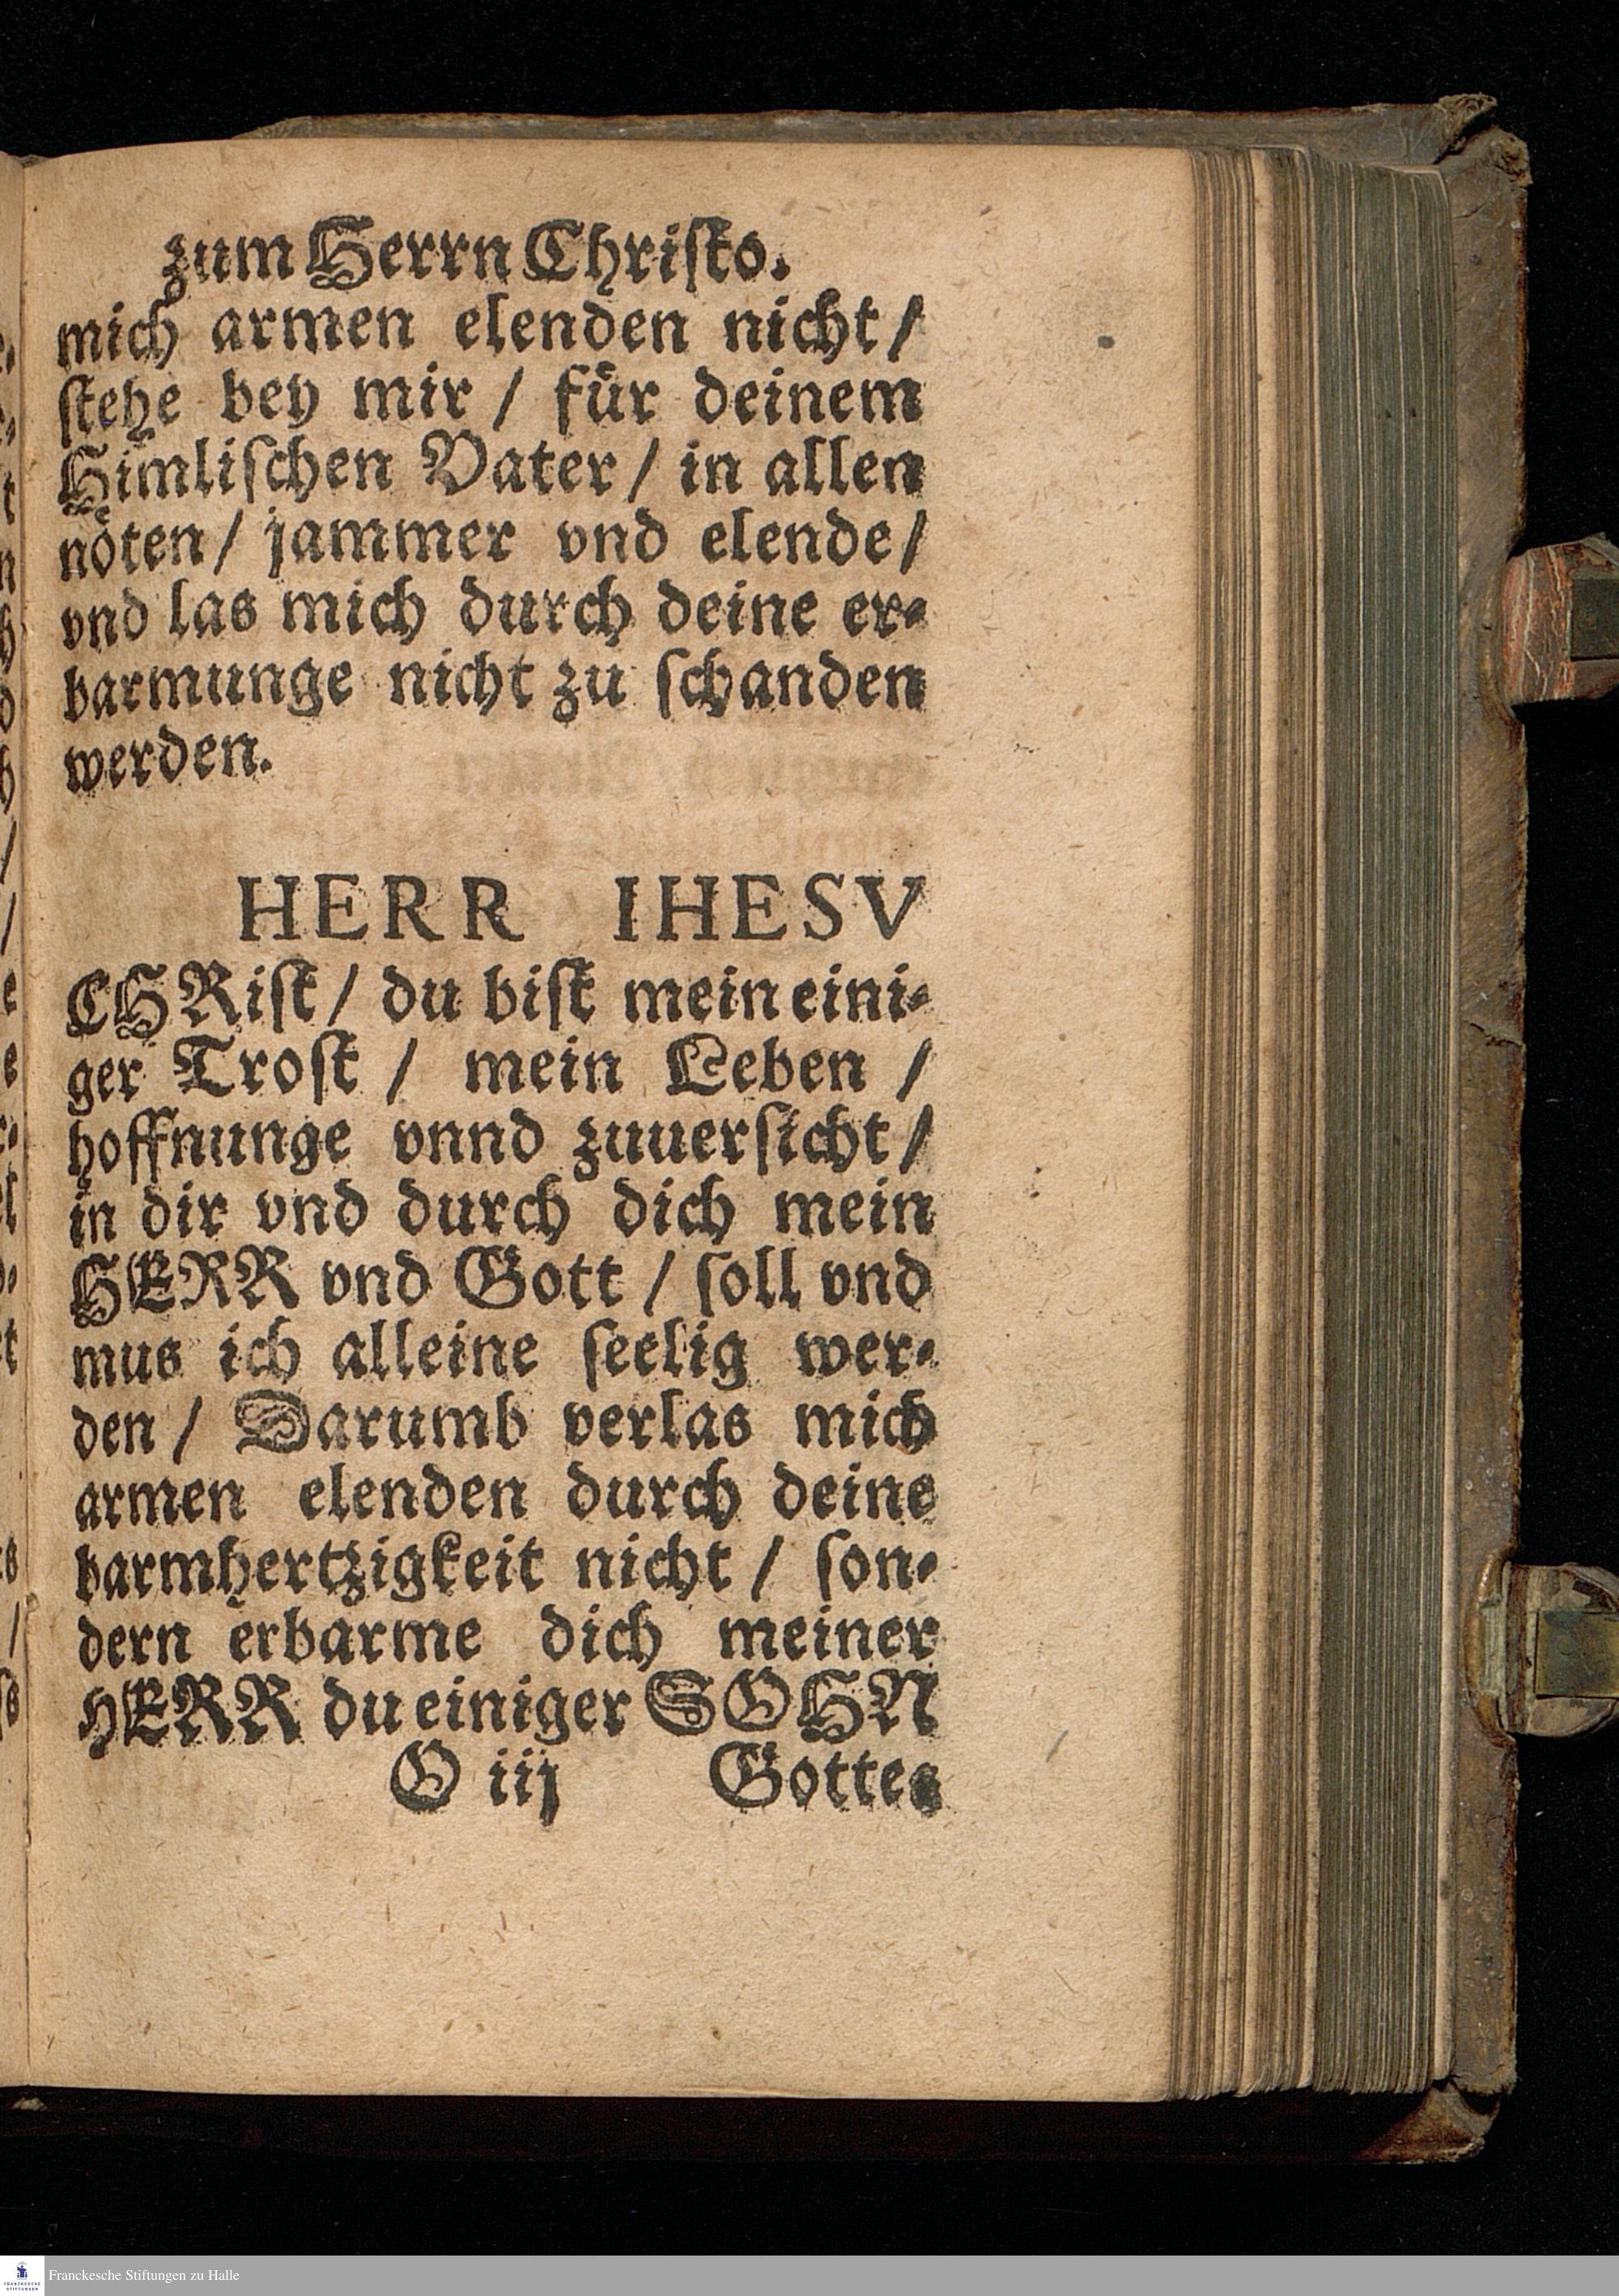 zum Herrn Christo.
mich armen elenden nicht /
stehe bey mir / für deinem
Himlischen Vater / in allen
nöten / jammer vnd elende /
vnd las mich durch deine er⸗
barmunge nicht zu schanden
werden.
HERR IHESV
CHRist / du bist mein eini⸗
ger Trost / mein Leben /
hoffnunge vnnd zuuersicht /
in dir vnd durch dich mein
HERR vnd Gott / soll vnd
mus ich alleine seelig wer⸗
den / Darumb verlas mich
armen elenden durch deine
barmhertzigkeit nicht / son⸗
dern erbarme dich meiner
HERR du einiger SOHN
O iij Gottes
Franckesche Stiftungen zu Halle